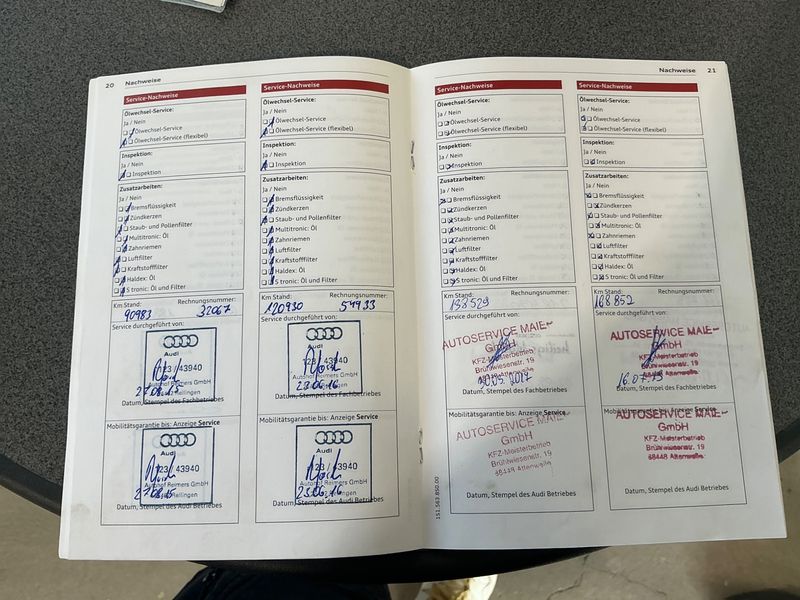 20 Nachweise
Service-Nachweise
Ölwechsel-Service:
Ja / Nein
Ölwechsel-Service
Ölwechsel-Service (flexibel)
Inspektion:
Ja / Nein
Inspektion
Zusatzarbeiten:
Ja / Nein
Bremsflüssigkeit
Zündkerzen
Staub- und Pollenfilter
Multitronic: Öl
Zahnriemen
Luftfilter
Kraftstofffilter
Haldex: Öl
S tronic: Öl und Filter
Km Stand: Rechnungsnummer:
90983 32067
Service durchgeführt von:
Audi
123 / 43940
Autohof Reimers GmbH
27.08.15 Rellingen
Datum, Stempel des Fachbetriebes
Mobilitätsgarantie bis: Anzeige Service
Audi
123 / 43940
Autohof Reimers GmbH
27.08.15 Rellingen
Datum, Stempel des Audi Betriebes
Service-Nachweise
Ölwechsel-Service:
Ja / Nein
Ölwechsel-Service
Ölwechsel-Service (flexibel)
Inspektion:
Ja / Nein
Inspektion
Zusatzarbeiten:
Ja / Nein
Bremsflüssigkeit
Zündkerzen
Staub- und Pollenfilter
Multitronic: Öl
Zahnriemen
Luftfilter
Kraftstofffilter
Haldex: Öl
S tronic: Öl und Filter
Km Stand: Rechnungsnummer:
120930 54933
Service durchgeführt von:
Audi
123 / 43940
Autohof Reimers GmbH
23.06.16
Datum, Stempel des Fachbetriebes
Mobilitätsgarantie bis: Anzeige Service
Audi
123 / 43940
Autohof Reimers GmbH
23.06.16
Datum, Stempel des Audi Betriebes
Nachweise 21
Service-Nachweise
Ölwechsel-Service:
Ja / Nein
Ölwechsel-Service
Ölwechsel-Service (flexibel)
Inspektion:
Ja / Nein
Inspektion
Zusatzarbeiten:
Ja / Nein
Bremsflüssigkeit
Zündkerzen
Staub- und Pollenfilter
Multitronic: Öl
Zahnriemen
Luftfilter
Kraftstofffilter
Haldex: Öl
S tronic: Öl und Filter
Km Stand: Rechnungsnummer:
Service durchgeführt von:
AUTOSERVICE MAIE
GmbH
KFZ-Meisterbetrieb
Brühlwiesenstr. 19
2017
Datum, Stempel des Fachbetriebes
Mobilitätsgarantie bis: Anzeige Service
AUTOSERVICE MAIE
GmbH
KFZ-Meisterbetrieb
Brühlwiesenstr. 19
Datum, Stempel des Audi Betriebes
151.563.850.00
Service-Nachweise
Ölwechsel-Service:
Ja / Nein
Ölwechsel-Service
Ölwechsel-Service (flexibel)
Inspektion:
Ja / Nein
Inspektion
Zusatzarbeiten:
Ja / Nein
Bremsflüssigkeit
Zündkerzen
Staub- und Pollenfilter
Multitronic: Öl
Zahnriemen
Luftfilter
Kraftstofffilter
Haldex: Öl
S tronic: Öl und Filter
Km Stand: Rechnungsnummer:
168 852
Service durchgeführt von:
AUTOSERVICE MAIE
GmbH
KFZ-Meisterbetrieb
Brühlwiesenstr. 19
Datum, Stempel des Fachbetriebes
Mobilitätsgarantie bis: Anzeige Service
AUTOSERVICE MAIE
GmbH
KFZ-Meisterbetrieb
Brühlwiesenstr. 19
Datum, Stempel des Audi Betriebes